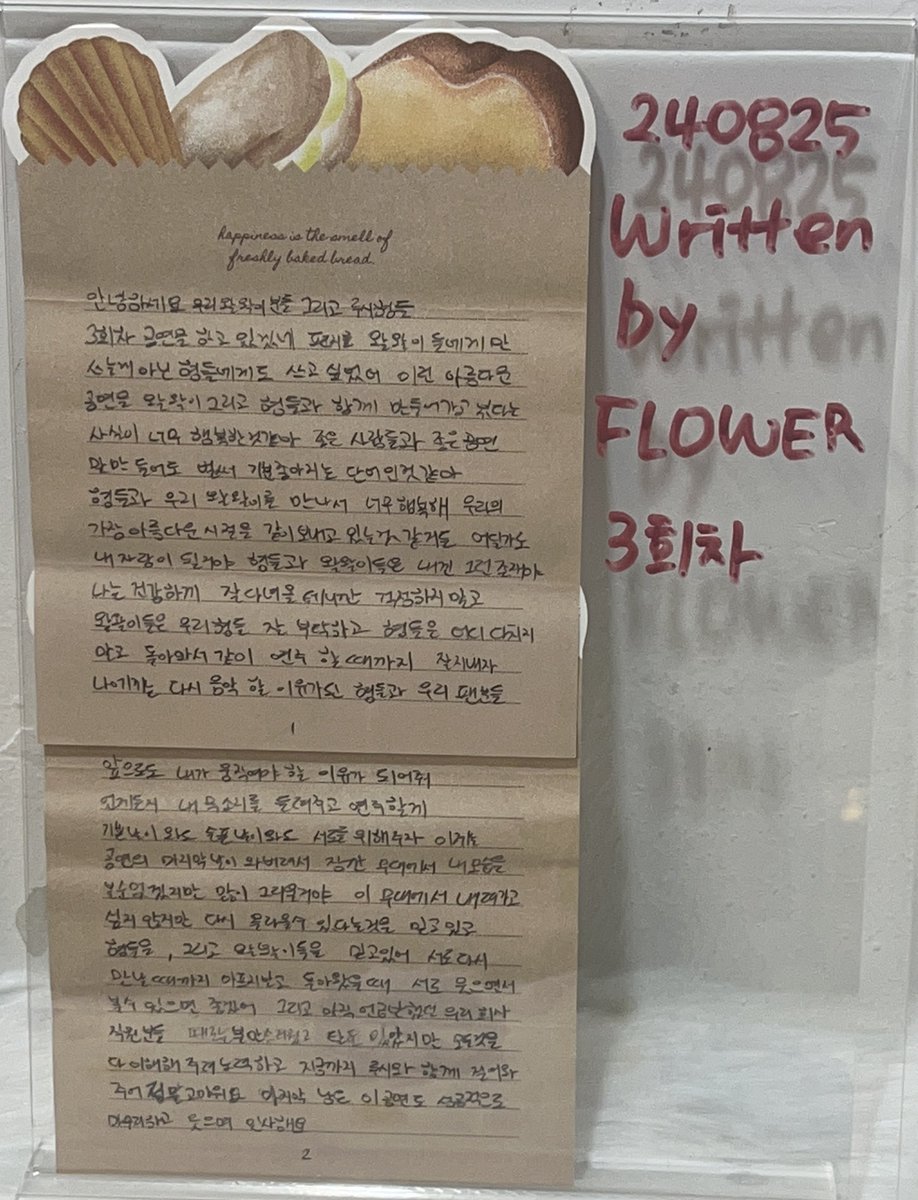 happiness is the smell of
freshly baked bread.
안녕하세요 우리 왈왈이 분들 그리고 루시형들
3회차 공연을 하고 있겠네 편지로 왈왈이 들에게 만
쓰는게 아닌 형들에게도 쓰고 싶었어 이런 아름다운
공연을 왈왈이 그리고 형들과 함께 만들어가고 있다는
사실이 너무 행복한것같아 좋은 사람들과 좋은 공연
말만 들어도 벌써 기분좋아지는 단어인것같아
형들과 우리 왈왈이를 만나서 너무 행복해 우리의
가장 아름다운 시절을 같이 보내고 있는것 같거든 어딜가도
내 자랑이 될거야 형들과 왈왈이들은 내겐 그런 존재야
나는 건강하게 잘 다녀올 테니깐 걱정하지 말고
왈왈이들은 우리형들 잘 부탁하고 형들은 어디 다치지
말고 돌아와서 같이 연주 할 때까지 잘지내자
나에게는 다시 음악 할 이유가 형들과 우리 팬분들
1
앞으로도 내가 움직여야 할 이유가 되어줘
언제든지 내 목소리를 들려주고 연주할게
기쁜날이 와도 슬픈날이와도 서로를 위해주자 이제는
공연의 마지막 날이 와버려서 잠깐 무대에서 내 모습을
못 많이 그리울거야 이 무대에서 내려가고
싶지 않지만 다시 올라올수 있다는것을 믿고 있고
형들을, 그리고 왈왈이들을 믿고있어 서로 다시
만날 때까지 아프지말고 돌아왔을때 서로 웃으면서
볼수 있으면 좋겠어 그리고 아직 언급안했던 우리 회사
직원분들 때로는 불만스러웠고 탈도 있었지만 모든것을
다 이해해 주려 노력하고 지금까지 루시와 함께 걸어와
주어 정말 고마워요 마지막 날도 이 공연도 성공적으로
마무리하고 웃으며 인사해요
2
240825
Written
by
FLOWER
3회차